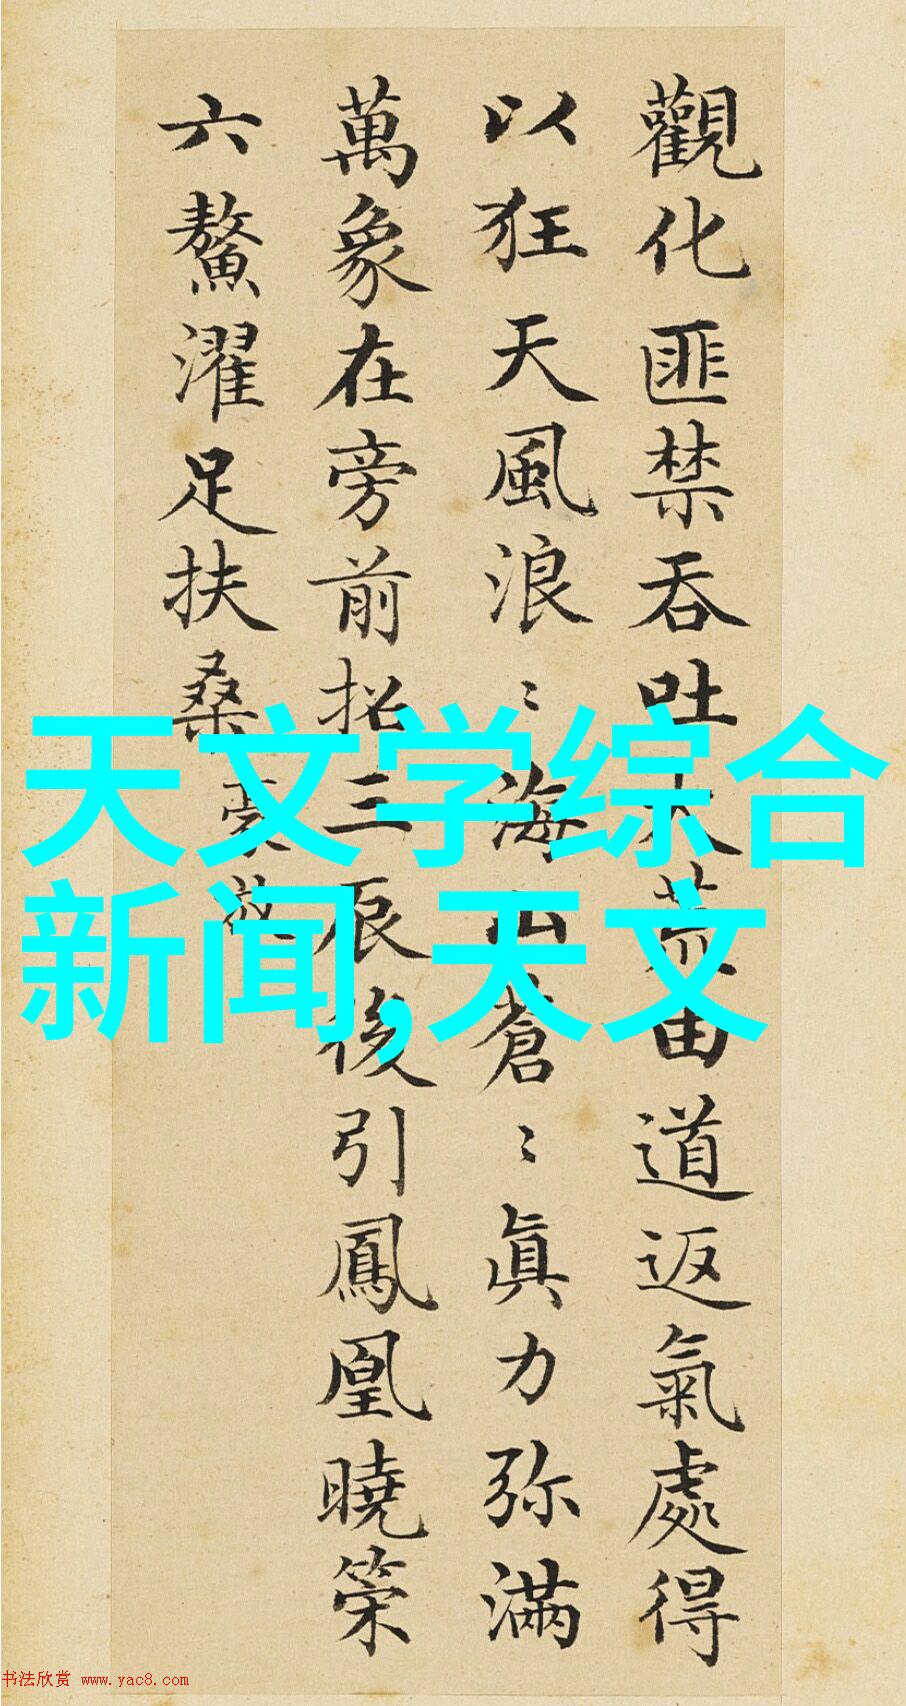 觀化匪禁吞吐大荒由道返氣處得
以狂天風浪〻海山蒼〻眞力弥滿
萬象在旁前招三辰後引鳳凰曉策
六鰲濯足扶桑
天文学综合
新闻,天文
书法欣赏 www.yac8.com